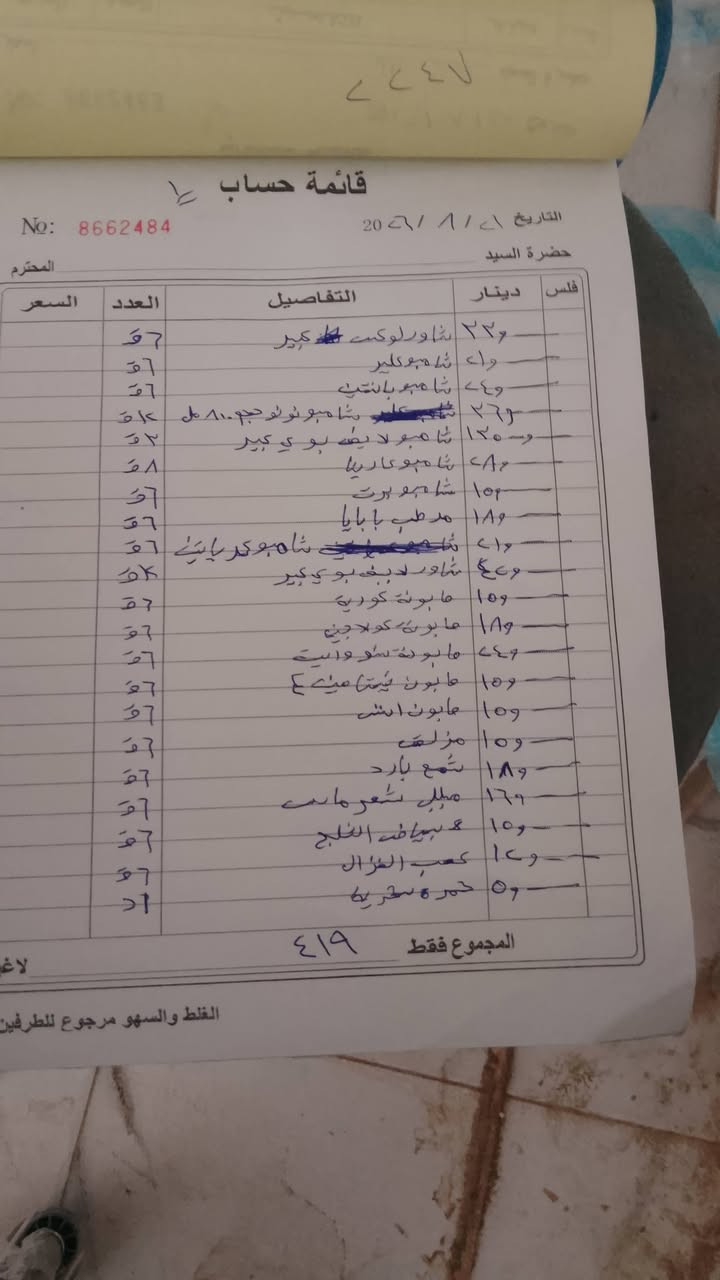 ٢٤٧
قائمة حساب
No: 8662484
التاريخ ٢١ / ١ / 20٢٦
حضرة السيد المحترم
فلس دينار التفاصيل العدد السعر
٣٣و شاور لوكس كبير ٦ق
٢١و شامبو كلير ٦ق
٢٤و شامبو بانتين ٦ق
٣٦و شامبو نونو حجم ٨٠٠ مل ١٢ق
١٣٥و شامبو لايف بوي كبير ٣ق
٢٨و شامبو ٨ق
١٥و شامبو برت ٦ق
١٨و مرطب بابايا ٦ق
٢١و شامبو ٦ق
٤٢و شاور لايف بوي كبير ١٢ق
١٥و صابونة كورية ٦ق
١٨و صابونة كولاجين ٦ق
٢٤و صابونة سودانية ٦ق
١٥و صابون فيتامين ٤ ٦ق
١٥و صابون ٦ق
١٥و مزلق ٦ق
١٨و شمع بارد ٦ق
١٦و شعر ٦ق
١٥و بياض الخليج ٦ق
١٢و عشب الغزال ٦ق
٥و خمرة ١د
المجموع فقط ٤١٩
الغلط والسهو مرجوع للطرفين